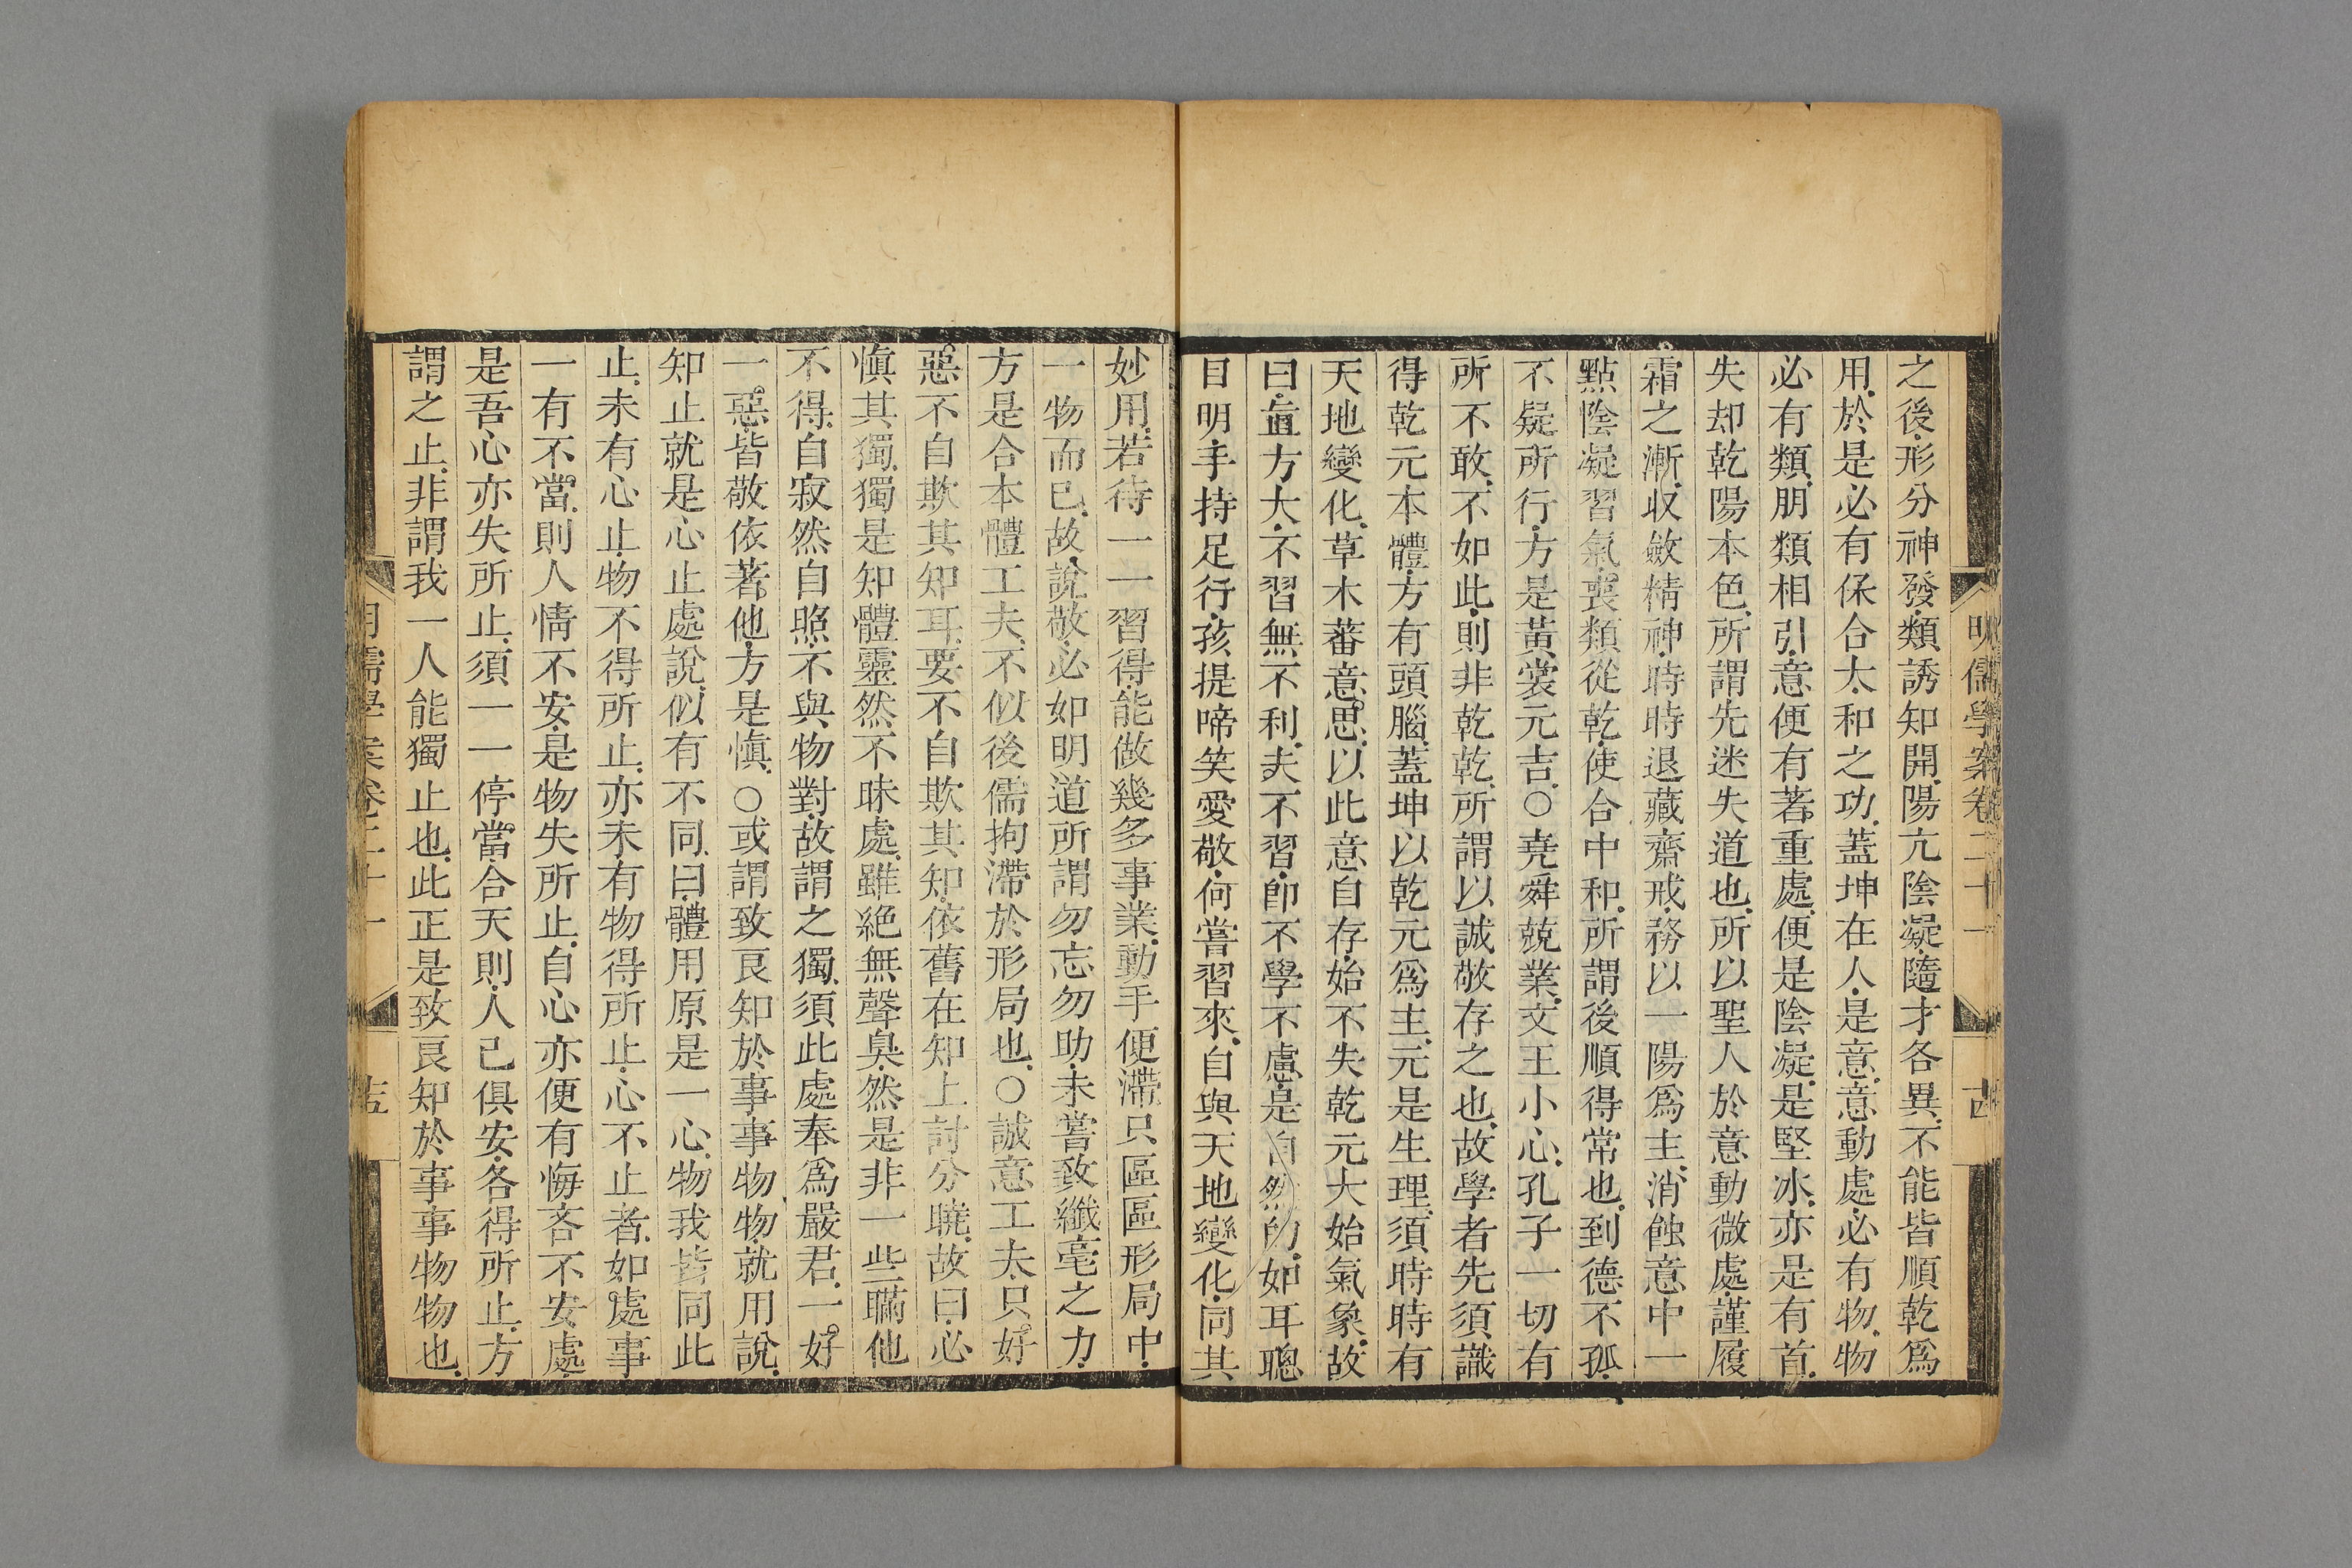 明儒學案卷二十一
之後形分神發類誘知開陽亢陰凝隨才各異不能皆順乾爲
用於是必有保合太和之功蓋坤在人是意意動處必有物物
必有類朋類相引意便有著重處便是陰凝是堅冰亦是有首
失却乾陽本色所謂先迷失道也所以聖人於意動微處謹履
霜之漸收斂精神時時退藏齋戒務以一陽爲主消蝕意中一
點陰凝習氣喪類從乾使合中和所謂後順得常也到德不孤
不疑所行方是黃裳元吉○堯舜兢業文王小心孔子一切有
所不敢不如此則非乾乾所謂以誠敬存之也故學者先須識
得乾元本體方有頭腦蓋坤以乾元爲主元是生理須時時有
天地變化草木蕃意思以此意自存始不失乾元大始氣象故
曰直方大不習無不利夫不習卽不學不慮是自然的如耳聰
目明手持足行孩提啼笑愛敬何嘗習來自與天地變化同其
妙用若待一一習得能做幾多事業動手便滯只區區形局中
一物而已故說敬必如明道所謂勿忘勿助未嘗致纖毫之力
方是合本體工夫不似後儒拘滯於形局也○誠意工夫只好
惡不自欺其知耳要不自欺其知依舊在知上討分曉故曰必
愼其獨獨是知體靈然不昧處雖絕無聲臭然是非一些瞞他
不得自寂然自照不與物對故謂之獨須此處奉爲嚴君一好
一惡皆敬依著他方是愼○或謂致良知於事事物物就用說
知止就是心止處說似有不同曰體用原是一心物我皆同此
止未有心止物不得所止亦未有物得所止心不止者如處事
一有不當則人情不安是物失所止自心亦便有悔吝不安處
是吾心亦失所止須一一停當合天則人己俱安各得所止方
謂之止非謂我一人能獨止也此正是致良知於事事物物也
明儒學案卷二十一